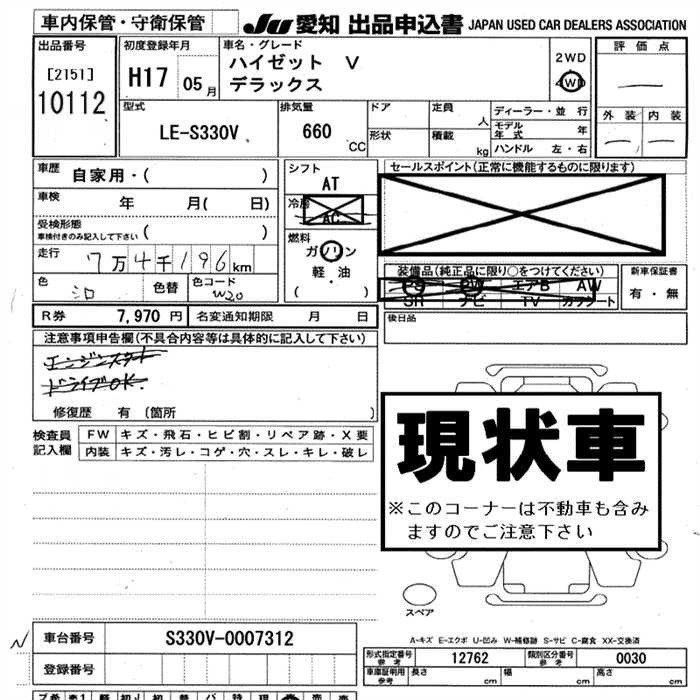 車内保管・守衛保管
JU 愛知 出品申込書 JAPAN USED CAR DEALERS ASSOCIATION
出品番号
[2151]
10112
初度登録年月
H17 05月
車名・グレード
ハイゼット V
デラックス
2WD
4WD
評価点
外装 内装
型式
LE-S330V
排気量
660 CC
ドア
形状
定員 人
積載 kg
ディーラー・並行
モデル年式 年
ハンドル 左・右
車歴
自家用・( )
車検 年 月( 日)
受検形態
車検付きのみ記入して下さい ( )
走行 7万4千196km
色 シロ
色替
色コード W20
シフト
AT
冷房
AC
燃料
ガソリン
軽・油
( )
セールスポイント(正常に機能するものに限ります)
装備品(純正品に限り○をつけてください)
PS PW エアB AW
SR ナビ TV カワシート
新車保証書
有・無
R券 7,970円 名変通知期限 月 日
後日品
注意事項申告欄(不具合内容等は具体的に記入して下さい)
エンジンスタート
ドライブOK.
修復歴 有〔箇所 〕
検査員記入欄
FW キズ・飛石・ヒビ割・リペア跡・X要
内装 キズ・汚レ・コゲ・穴・スレ・キレ・破レ
現状車
※このコーナーは不動車も含み
ますのでご注意下さい
スペア
A-キズ E-エクボ U-凹み W-補修跡 S-サビ C-腐食 XX-交換済
車台番号 S330V-0007312
登録番号
形式指定番号 参考 12762 類別区分番号 参考 0030
車庫証明用 参考 長さ cm 幅 cm 高さ cm